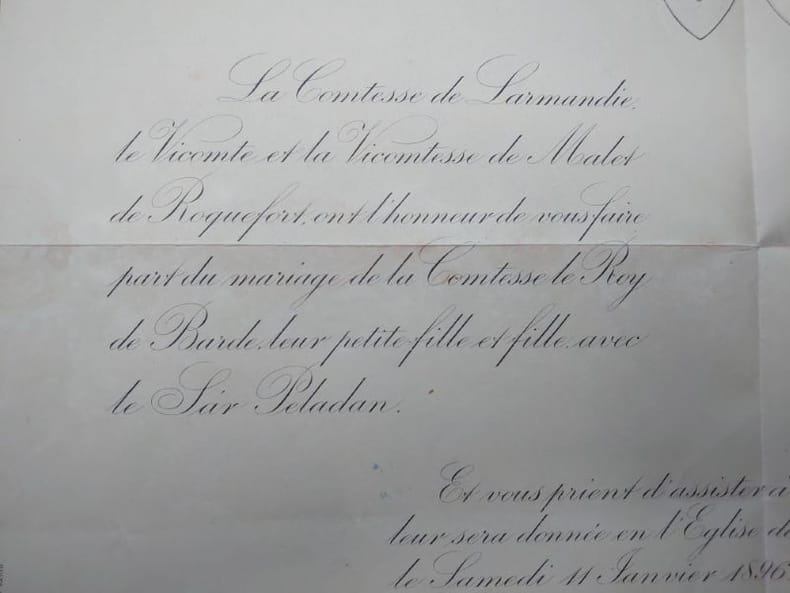 La Comtesse de Larmandie,
le Vicomte et la Vicomtesse de Malet
de Roquefort, ont l'honneur de vous faire
part du mariage de la Comtesse le Roy
de Barde, leur petite-fille et fille, avec
le Sâr Peladan.
Et vous prient d'assister à
leur sera donnée en l'Eglise de
le Samedi 11 Janvier 1896